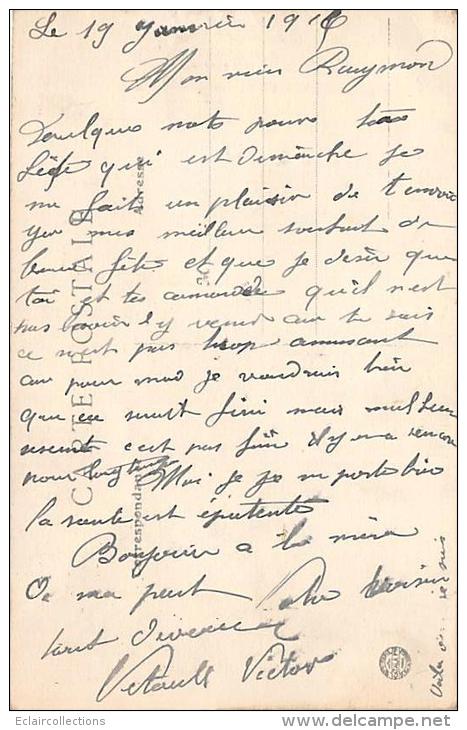 Le 19 Janvier 1916
Mon vieu Raymond
Quelque mots pour ta
fête qui est dimanche je
me fait un plaisir de t'envoi
yer mes meilleur souhait de
bone fête et que je désir que
toi et tes camarade qu'il n'est
pas besoin d'y venir car tu sais
ce n'est pas trop amusant
car pour moi je voudrais bien
que ce nuit fini mais malheu
reusement c'est pas fini il y en a encor
pour longtemps Moi je je me porte bien
la santé est épatente
Bonjour a la mère
De ma part
voisin
tout
Victor
CARTE POSTALE
Correspondance
Adresse
Eclaircollections